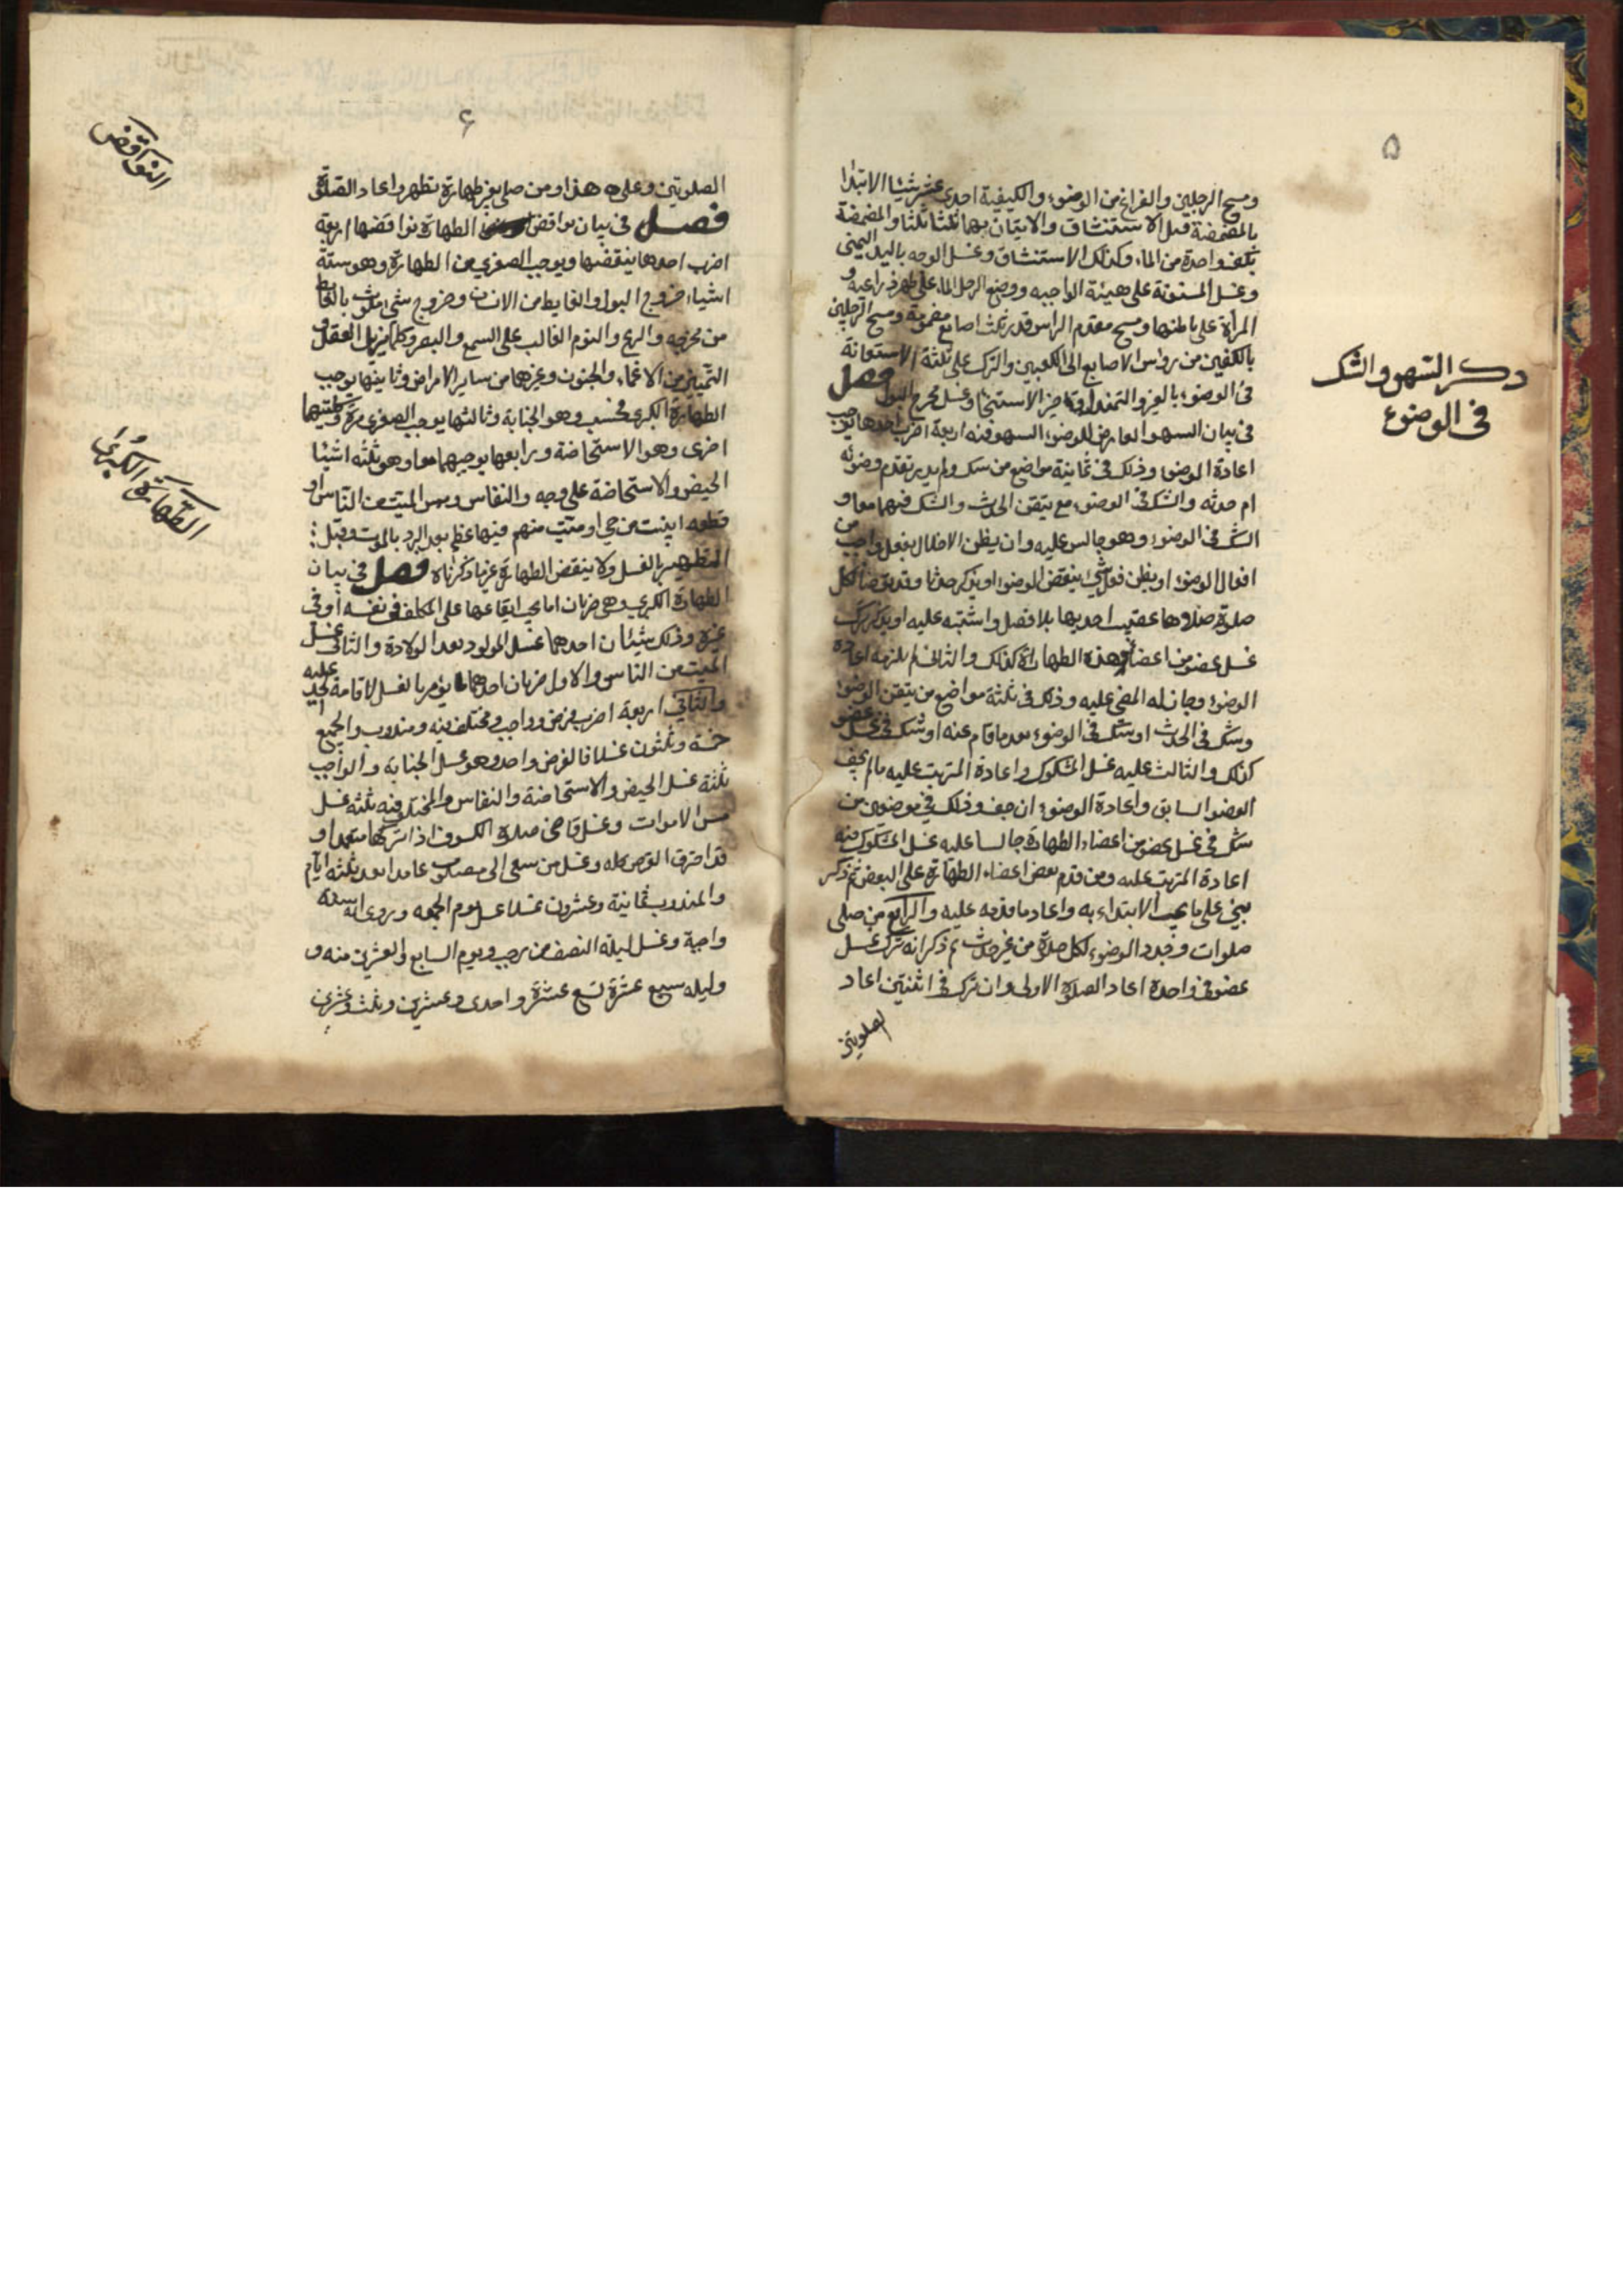 ۵
ومسح الرجلين والفراغ من الوضوء والكيفية احدى عشر شيئا الابتدا
بالمضمضة قبل الاستنشاق والاتيان بهما ثلثا ثلثا والمضمضة
بكف واحدة من الماء وكذلك الاستنشاق وغسل الوجه باليد اليمنى
وغسل المسنونة على هيئة الواجبه ووضع الرجل الماء على ظهر ذراعيه و
المرأة على باطنها ومسح مقدم الراس قدر ثلث اصابع مضمومة ومسح الرجلين
بالكفين من رؤس الاصابع الى الكعبين والترك على ثلثة الاستعانة
فى الوضوء بالغير والتمندل وتاخير الاستنجا وغسل مخرج البول فصل
فى بيان السهو العارض للوضوء السهو فيه اربعة اضرب احدها يوجب
اعادة الوضوء وذلك فى ثمانية مواضع من شك ولم يدر تقدم وضوئه
ام حدثه والشك فى الوضوء مع تيقن الحدث والشك فيهما معا و
الشك فى الوضوء وهو جالس عليه وان يظن الاخلال بفعل واجب من
افعال الوضوء او يظن فعل شئ ينقض الوضوء او يذكر حدثا وقد توضأ لكل
صلوة صلاوها عقيب احديها بلا فصل واشتبه عليه او يذكر ترك
غسل عضو من اعضاء هذه الطهارة كذلك والثانى لم يلزمه اعادة
الوضوء وجاز له المضى عليه وذلك فى ثلثة مواضع من تيقن الوضوء
وشك فى الحدث او شك فى الوضوء بعد ما قام عنه او شك فى غسل عضو
كذلك والثالث عليه غسل المشكوك واعادة المترتب عليه ما لم يجف
العضو السابق واعادة الوضوء ان جف وذلك فى موضعين من
شك فى غسل عضو من اعضاء الطهارة جالسا عليه غسل المشكوك فيه
اعادة المترتب عليه ومن قدم بعض اعضاء الطهارة على البعض ثم ذكر
يبنى على ما يجب الابتداء به واعاد ما قدمه عليه والرابع من صلى
صلوات وجدد الوضوء لكل صلوة من غير حدث ثم ذكر انه ترك غسل
عضو فى واحدة اعاد الصلوة الاولى وان ترك فى اثنتين اعاد
الصلوتين
ذكر السهو والشك
فى الوضوء
۶
الصلوتين وعلى هذا ومن صلى بغير طهارة تطهر واعاد الصلوة
فصل فى بيان نواقض الطهارة نواقضها اربعة
اضرب احدها ينقضها ويوجب الصغرى من الطهارة وهو ستة
اشياء خروج البول والغايط من الانسان وخروج شئ ملوث بالغايط
من مخرجه والريح والنوم الغالب على السمع والبصر وكلما يزيل العقل و
التمييز من الاغماء والجنون وغيرهما من ساير الامراض وثانيها يوجب
الطهارة الكبرى فحسب وهو الجنابة وثالثها يوجب الصغرى مرة وكلتيهما
اخرى وهو الاستحاضة ورابعها يوجبهما معا وهو ثلثه اشيا
الحيض والاستحاضة على وجه والنفاس ومس الميت من الناس او
قطعه ابينت من حى او ميت منهم فيها عظم بعد البرد بالموت وقبل
التطهير بالغسل ولا ينقض الطهارة غير ما ذكرناه فصل فى بيان
الطهارة الكبرى وهى ضربان اما يجب ايقاعها على المكلف فى نفسه او فى
غيره وذلك شيئان احدهما غسل المولود بعد الولادة والثانى غسل
الميت من الناس والاول ضربان احدهما يؤمر بالغسل لاقامة الحد عليه
والثانى اربعة اضرب فرض وواجب ومختلف فيه ومندوب والجميع
خمسة وثلثون غسلا فالفرض واحد وهو غسل الجنابة والواجب
ثلثة غسل الحيض والاستحاضة والنفاس والمختلف فيه ثلثه غسل
مس الاموات وغسل قاضى صلوة الكسوف اذا تركها متعمدا و
قد احترق القرص كله وغسل من سعى الى مصلوب عامدا بعد ثلثه ايام
والمندوب ثمانية وعشرون غسلا غسل يوم الجمعه وروى انه سنة
واجبة وغسل ليلة النصف من رجب ويوم السابع والعشرين منه و
وليله سبع عشرة تسع عشرة واحدى وعشرين وثلث وعشرين
النواقض
الطهارة الكبرى